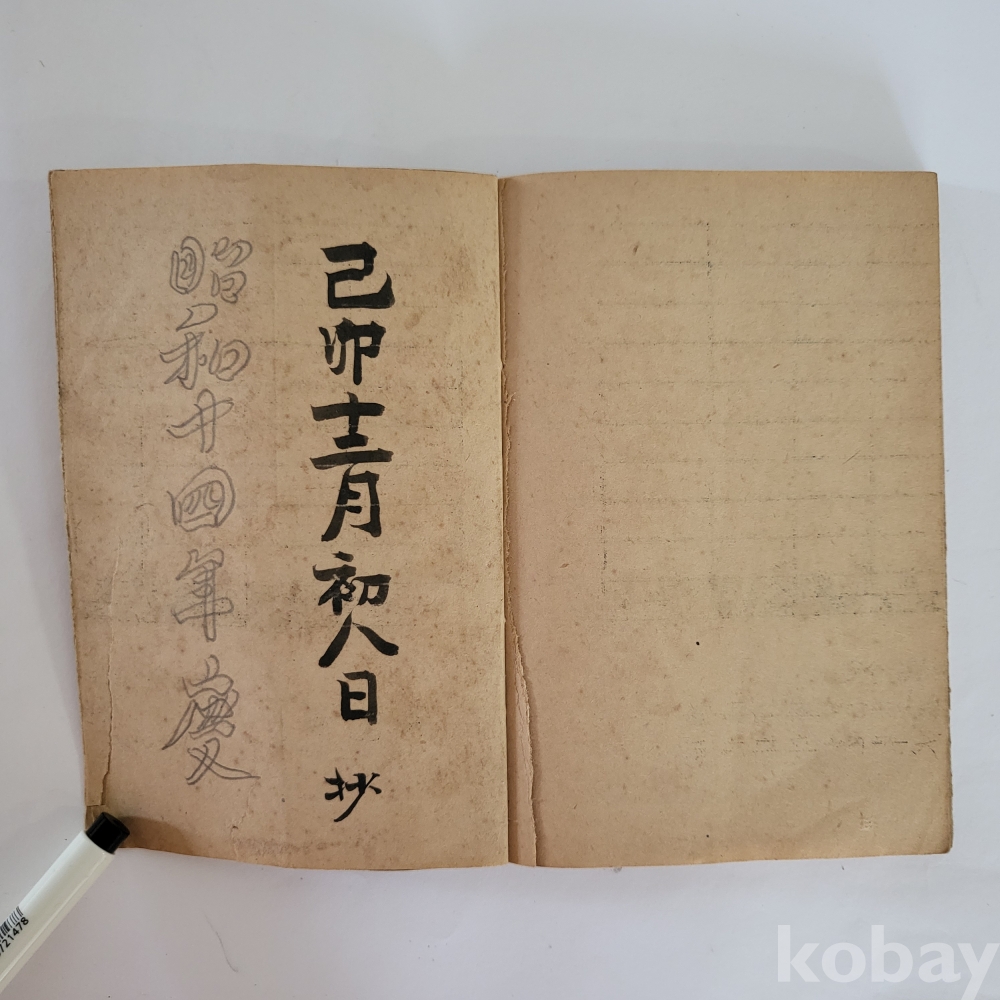 己卯十二月初八日 抄
昭和十四年慶
721478
kobay